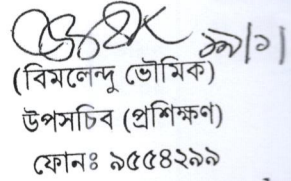 (বিমলেন্দু ভৌমিক)
উপসচিব (প্রশিক্ষণ)
ফোনঃ ৯৫৫৪২৯৯